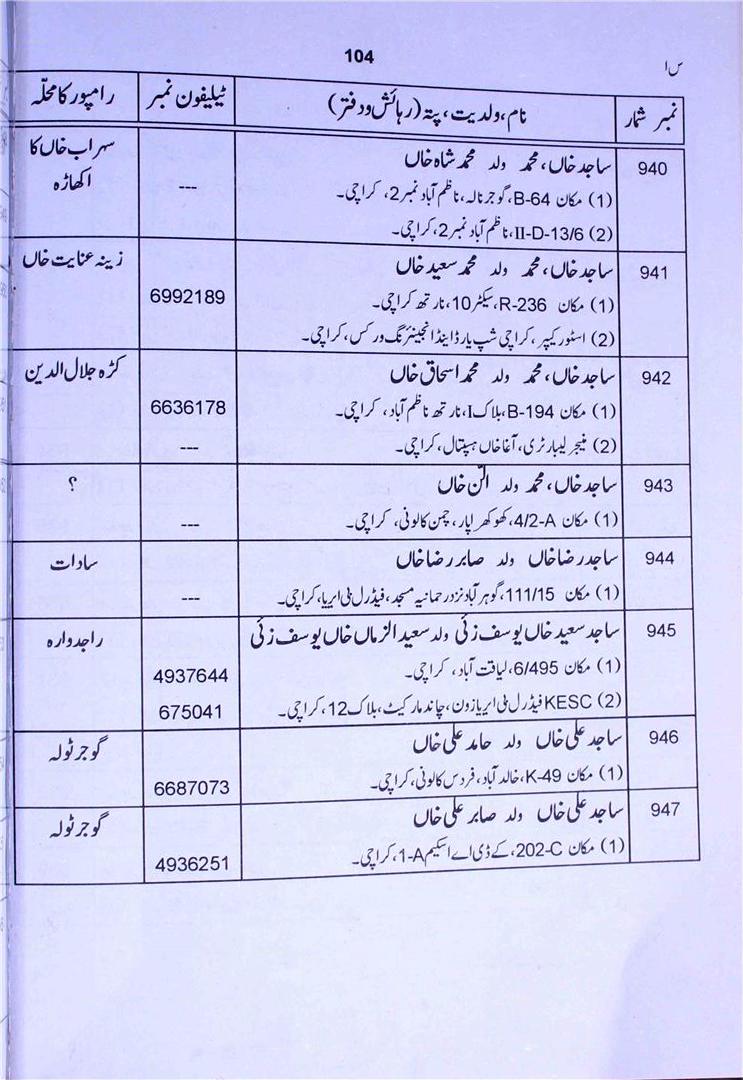 104
س ا
نمبر شمار	نام، ولدیت، پتہ (رہائش و دفتر)	ٹیلیفون نمبر	رامپور کا محلّہ
940	ساجد خاں، محمد ولد محمد شاہ خاں	سہراب خاں کا
(1) مکان B-64، گوجر نالہ، ناظم آباد نمبر 2، کراچی۔	---	اکھاڑہ
(2) II-D-13/6، ناظم آباد نمبر 2، کراچی۔
941	ساجد خاں، محمد ولد محمد سعید خاں	زینہ عنایت خاں
(1) مکان R-236، سیکٹر 10، نارتھ کراچی۔	6992189
(2) اسٹور کیپر، کراچی شپ یارڈ اینڈ انجینئرنگ ورکس، کراچی۔
942	ساجد خاں، محمد ولد محمد اسحاق خاں	کڑہ جلال الدین
(1) مکان B-194، بلاک I، نارتھ ناظم آباد، کراچی۔	6636178
(2) منیجر لیبارٹری، آغا خاں ہسپتال، کراچی۔	---
943	ساجد خاں، محمد ولد الّن خاں	؟
(1) مکان 4/2-A، کھوکھرا پار، چمن کالونی، کراچی۔	---
944	ساجد رضا خاں ولد صابر رضا خاں	سادات
(1) مکان 111/15، گوہر آباد نزد رحمانیہ مسجد، فیڈرل بی ایریا، کراچی۔	---
945	ساجد سعید خاں یوسف زئی ولد سعید الزماں خاں یوسف زئی	راجدوارہ
(1) مکان 6/495، لیاقت آباد، کراچی۔	4937644
(2) KESC فیڈرل بی ایریا زون، چاند مارکیٹ، بلاک 12، کراچی۔	675041
946	ساجد علی خاں ولد حامد علی خاں	گوجر ٹولہ
(1) مکان K-49، خالد آباد، فردس کالونی، کراچی۔	6687073
947	ساجد علی خاں ولد صابر علی خاں	گوجر ٹولہ
(1) مکان 202-C، کے ڈی اے اسکیم 1-A، کراچی۔	4936251